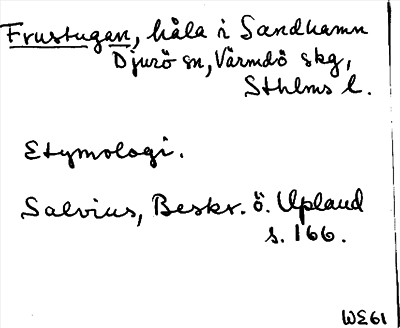 Frustugan, håla i Sandhamn
Djurö sn, Värmdö skg,
Sthlms l.
Etymologi.
Salvius, Beskr. ö. Upland
s. 166.
WE61